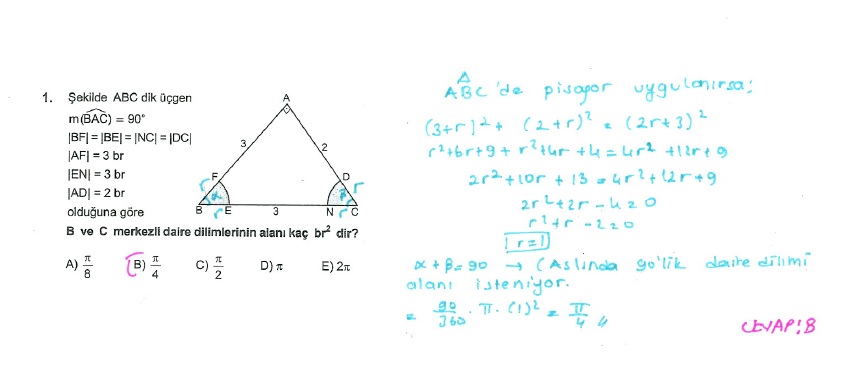 1. Şekilde ABC dik üçgen
m(BAC) = 90°
|BF| = |BE| = |NC| = |DC|
|AF| = 3 br
|EN| = 3 br
|AD| = 2 br
olduğuna göre
B ve C merkezli daire dilimlerinin alanı kaç br² dir?
A) π/8 B) π/4 C) π/2 D) π E) 2π
A
3
2
F
D
r
α
β
r
B
r
E
3
N
r
C
ABC'de pisagor uygulanırsa;
(3+r)² + (2+r)² = (2r+3)²
r²+6r+9 + r²+4r+4 = 4r² + 12r + 9
2r² + 10r + 13 = 4r² + 12r + 9
2r² + 2r - 4 = 0
r² + r - 2 = 0
r = 1
α + β = 90 → (Aslında 90'lik daire dilimi
alanı isteniyor.
= 90/360 · π · (1)² = π/4 //
CEVAP: B